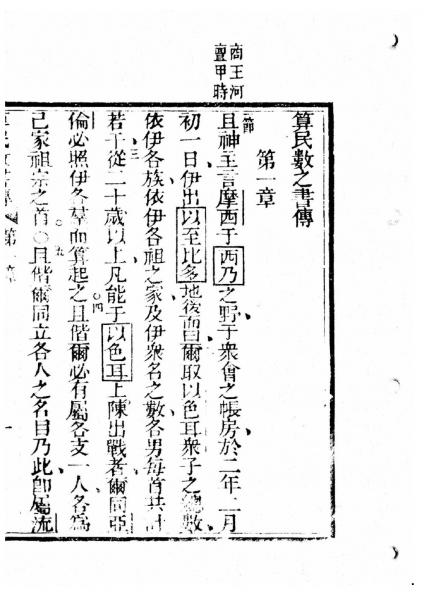 商王河
亶甲時
算民數之書傳
第一章
一節
且神主言摩西于西乃之野于眾會之帳房於二年二月
初一日伊出以至比多地後而曰爾取以色耳眾子之總數
依伊各族依伊各祖之家及伊眾名之數各男每首共計
三
若干從二十歲以上凡能于以色耳上陳出戰者爾同亞
四
倫必照伊各羣而算起之且偕爾必有屬各支一人各為
五
己家祖宗之首○且偕爾同立各人之名目乃此即屬流